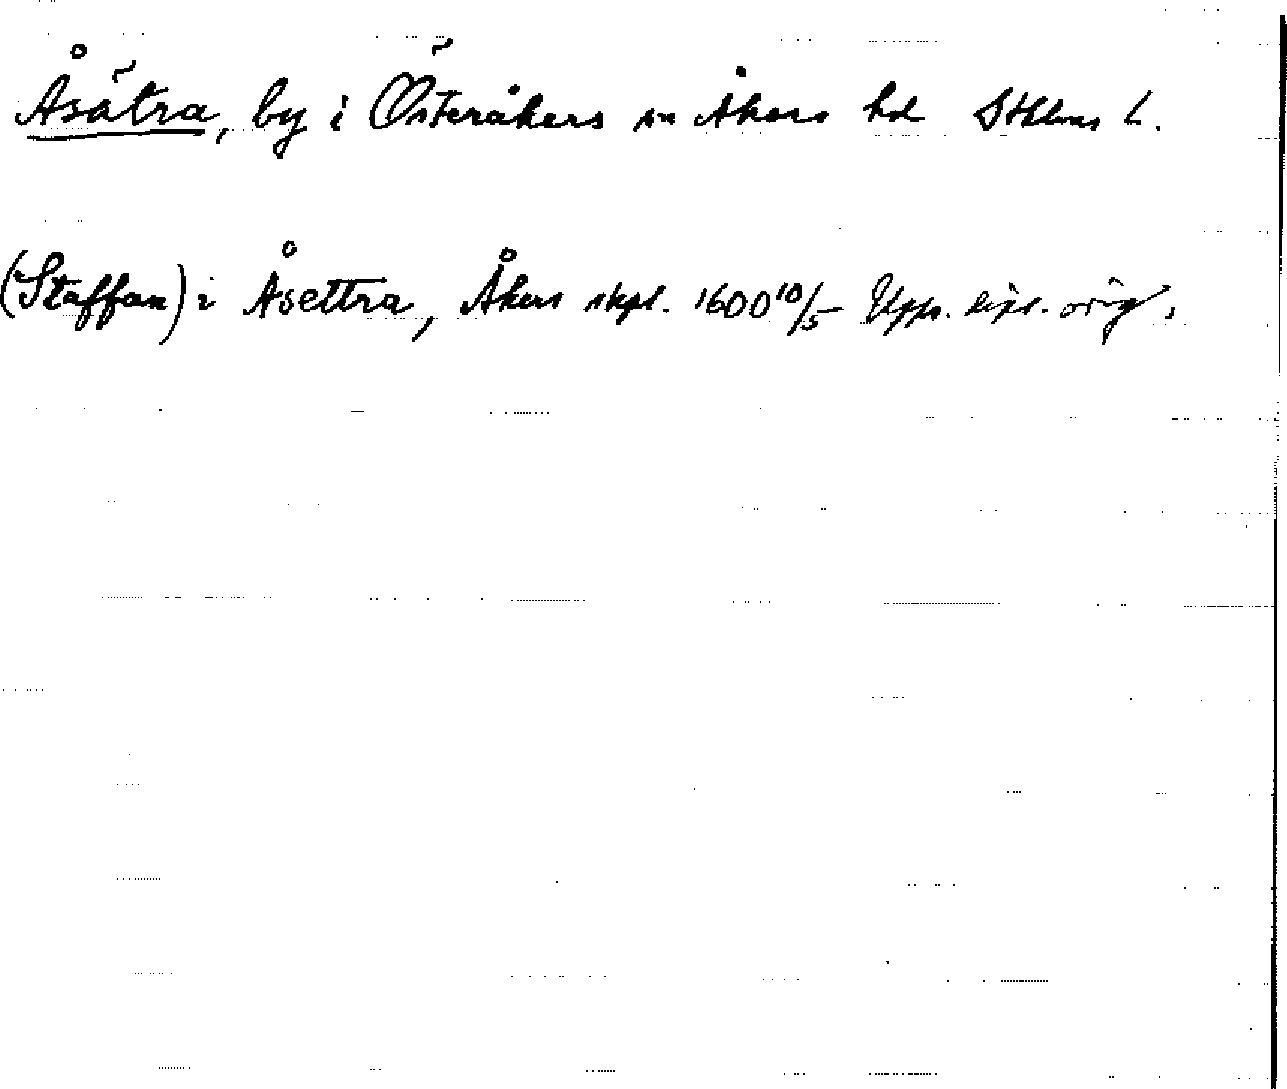 Åsätra, by i Österåkers sn Åkers hd Sthlms L.
(Staffan) i Åsettra, Åkers skpl. 1600 10/5 Upps. dipl. orig.